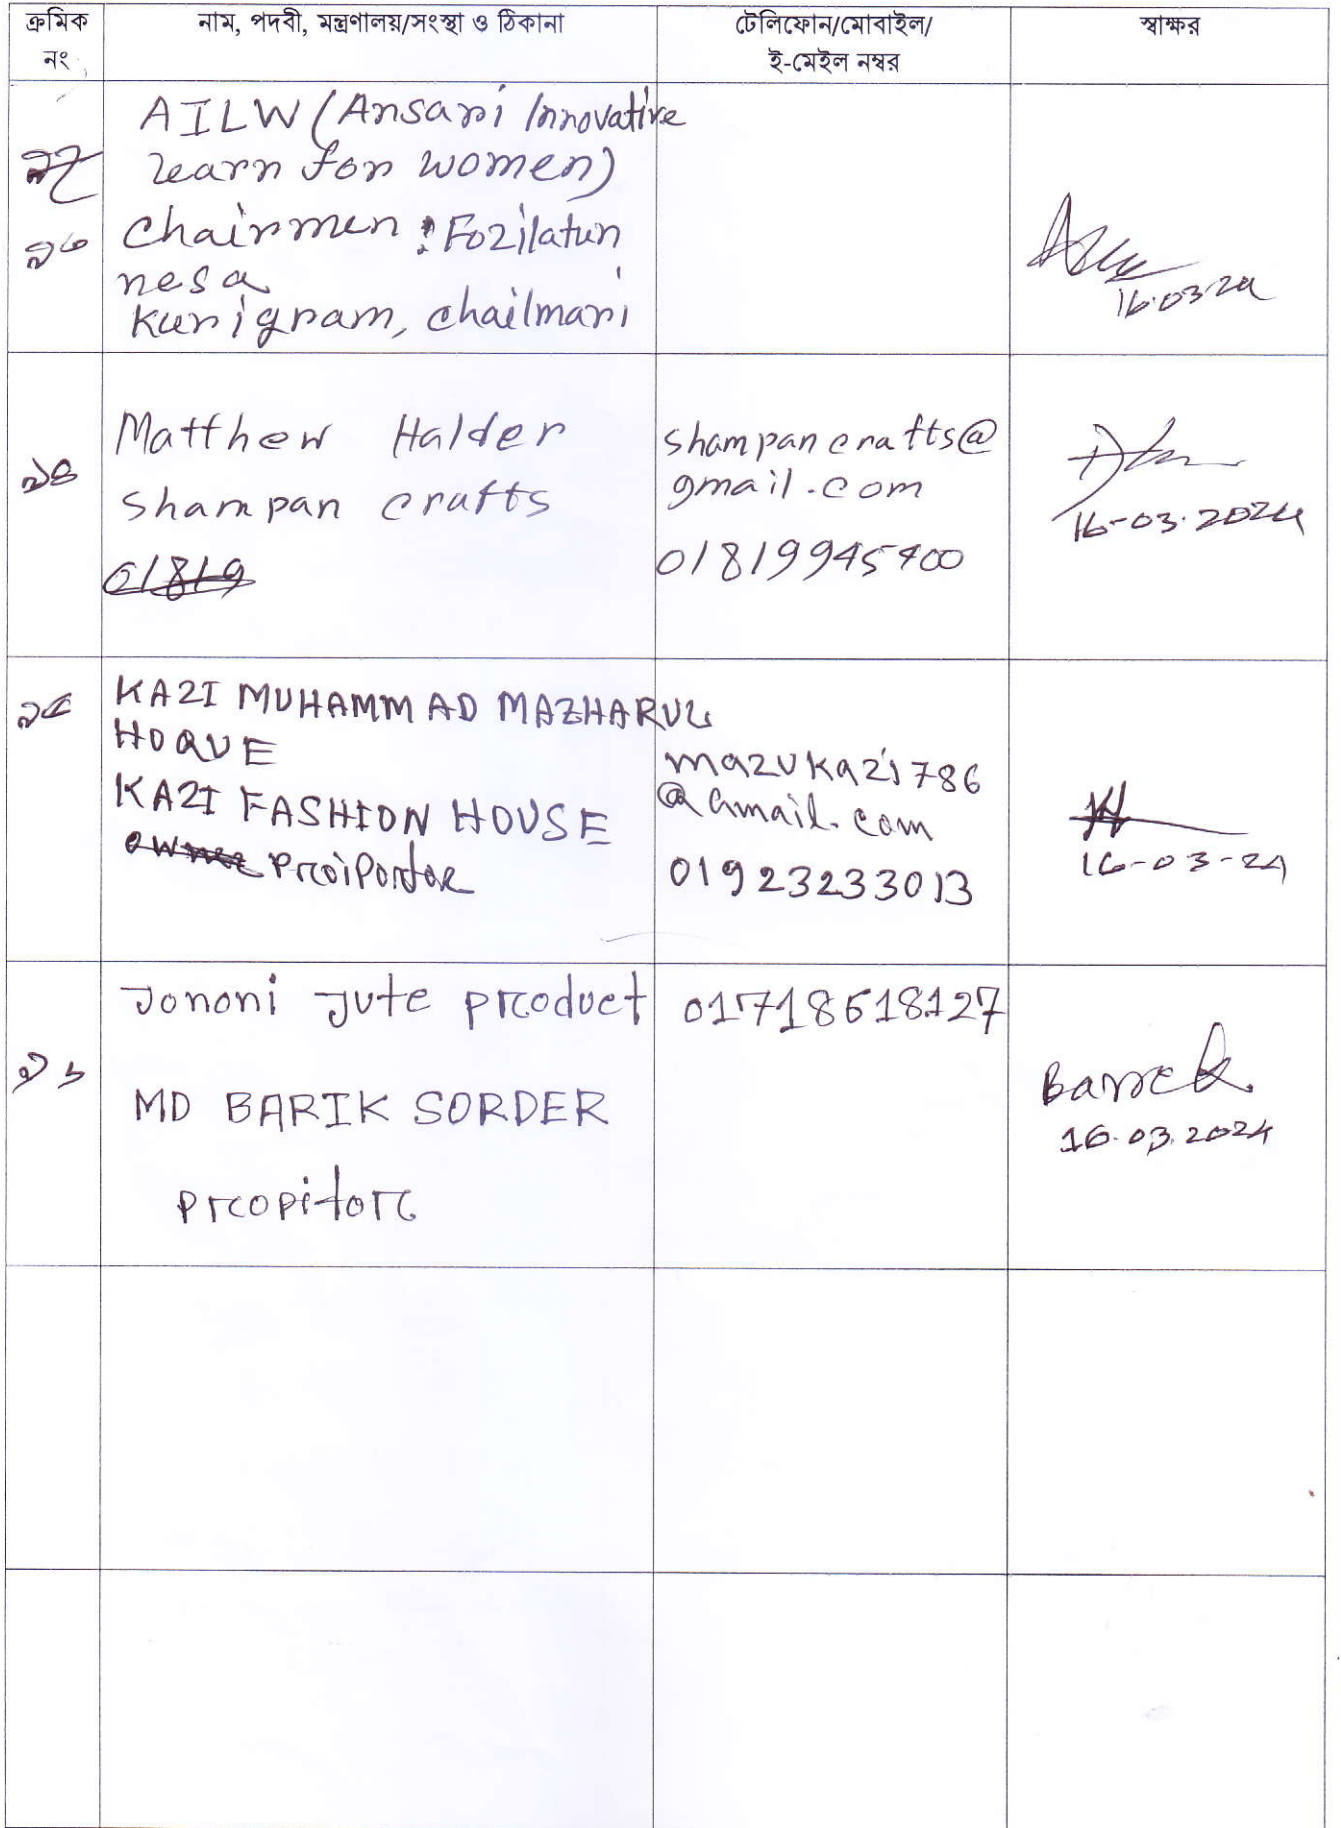 ক্রমিক
নং
নাম, পদবী, মন্ত্রণালয়/সংস্থা ও ঠিকানা
টেলিফোন/মোবাইল/
ই-মেইল নম্বর
স্বাক্ষর
৯৩
AILW (Ansari Innovative
learn for women)
Chairmen : Fozilatun
nesa
Kurigram, chailmari
16.03.24
৯৪
Matthew Halder
Shampan crafts
01819
shampancrafts@
gmail.com
01819945400
16-03.2024
৯৫
KAZI MUHAMMAD MAZHARUL
HOQUE
KAZI FASHION HOUSE
owner Proiportor
mazukazi786
@Gmail.com
01923233013
16-03-24
৯৬
Jononi Jute product
MD BARIK SORDER
propitor
01718618127
Barek
16.03.2024